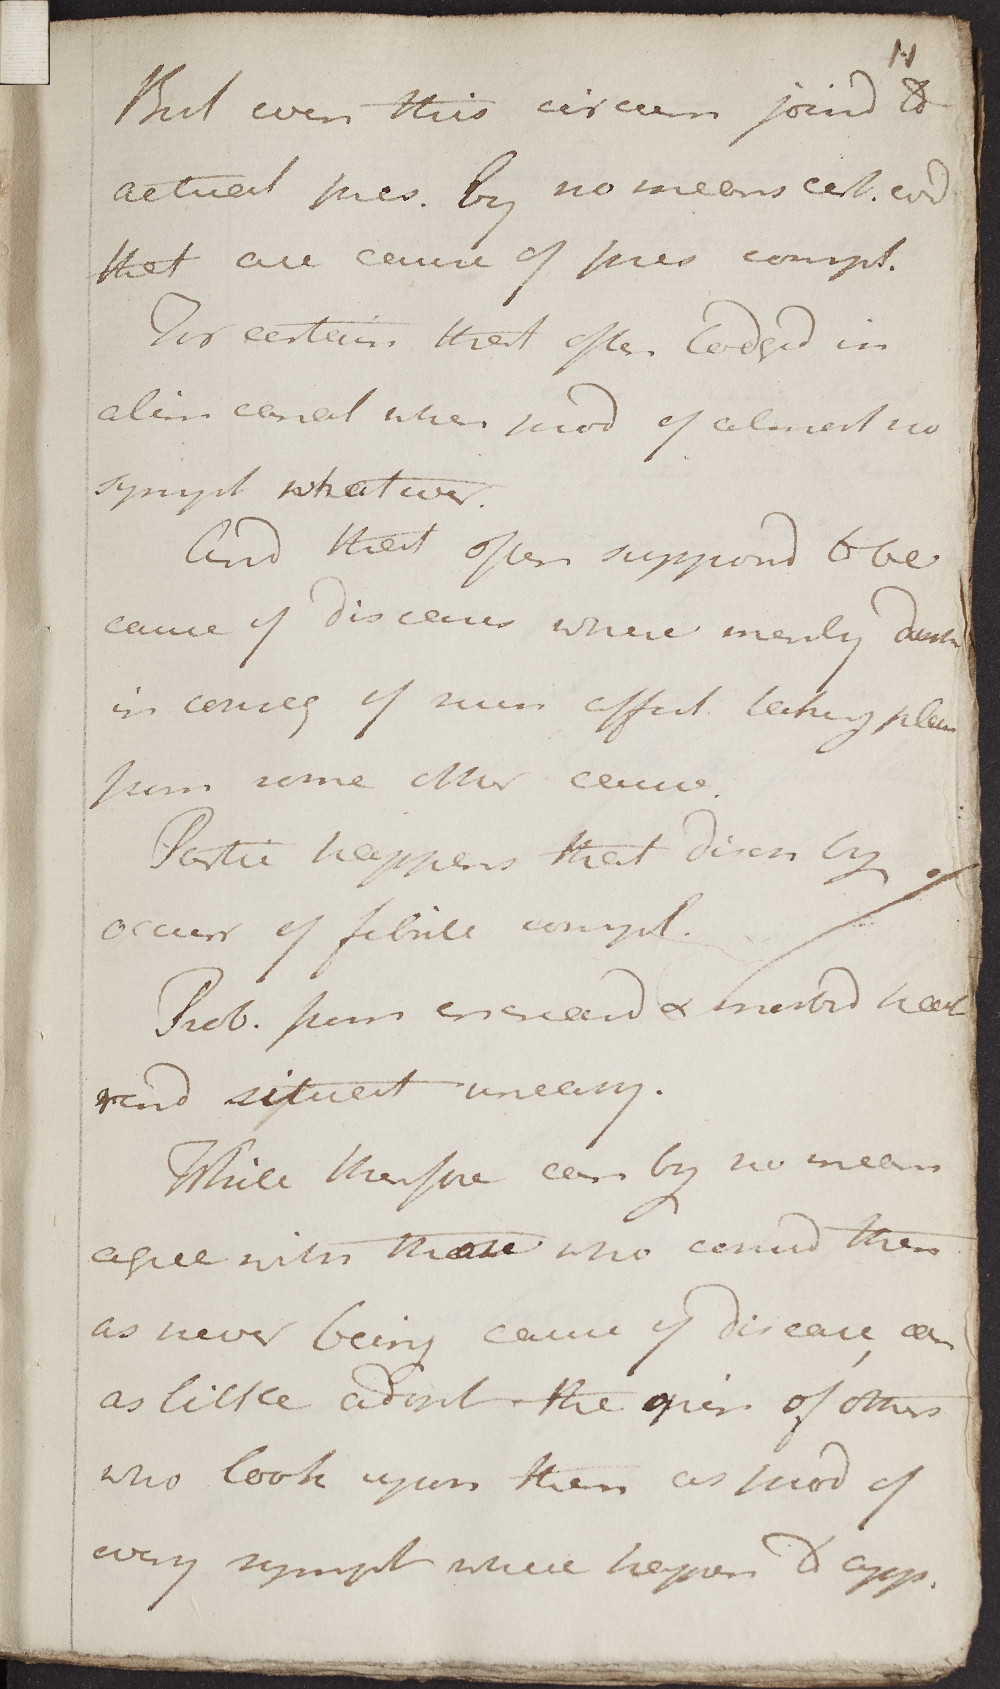 11
But even this circum joind to
actual pres. by no means cert. evid
that are cause of pres compl.
Tis certain that often lodgd in
alim canal when prod of almost no
sympt whatever.
And that often supposd to be
cause of diseases where merely
in conseq of affect taking place
from some other cause.
Partic happens that disch by
occurr of febrile compl.
Prob. from increasd & morbid heat
rend situat uneasy.
While therefore can by no mean
agree with those who consid them
as never being cause of disease, can
as little adopt the opin of others
who look upon them as prod of
every sympt where happen to app.